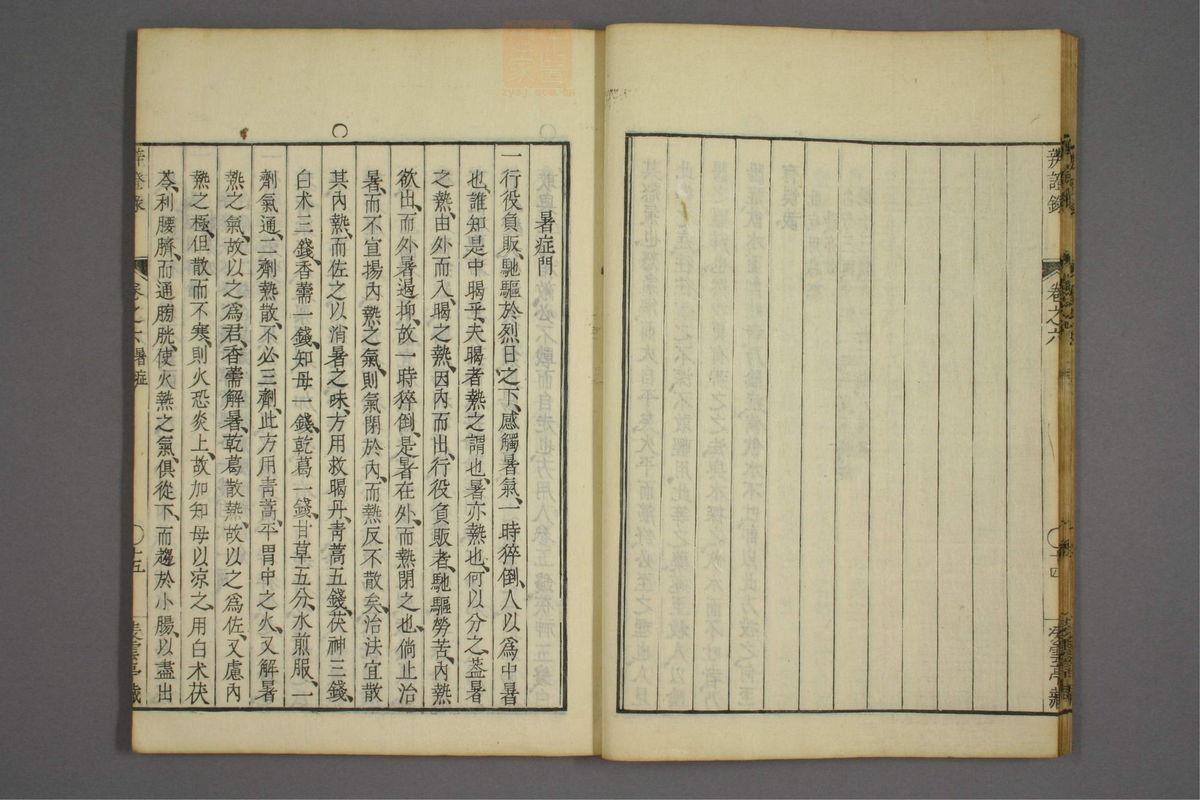 辨證錄
卷之六
暑症門
一行役負販馳驅於烈日之下感觸暑氣一時猝倒人以爲中暑
也誰知是中暍乎夫暍者熱之謂也暑亦熱也何以分之葢暑
之熱由外而入暍之熱因內而出行役負販者馳驅勞苦內熱
欲出而外暑遏抑故一時猝倒是暑在外而熱閉之也倘止治
暑而不宣揚內熱之氣則氣閉於內而熱反不散矣治法宜散
其內熱而佐之以消暑之味方用救暍丹靑蒿五錢茯神三錢
白术三錢香薷一錢知母一錢乾葛一錢甘草五分水煎服一
劑氣通二劑熱散不必三劑此方用靑蒿平胃中之火又解暑
熱之氣故以之爲君香薷解暑乾葛散熱故以之爲佐又慮內
熱之極但散而不寒則火恐炎上故加知母以凉之用白术茯
苓利腰臍而通膀胱使火熱之氣俱從下而趨於小腸以盡出
卷之六暑症